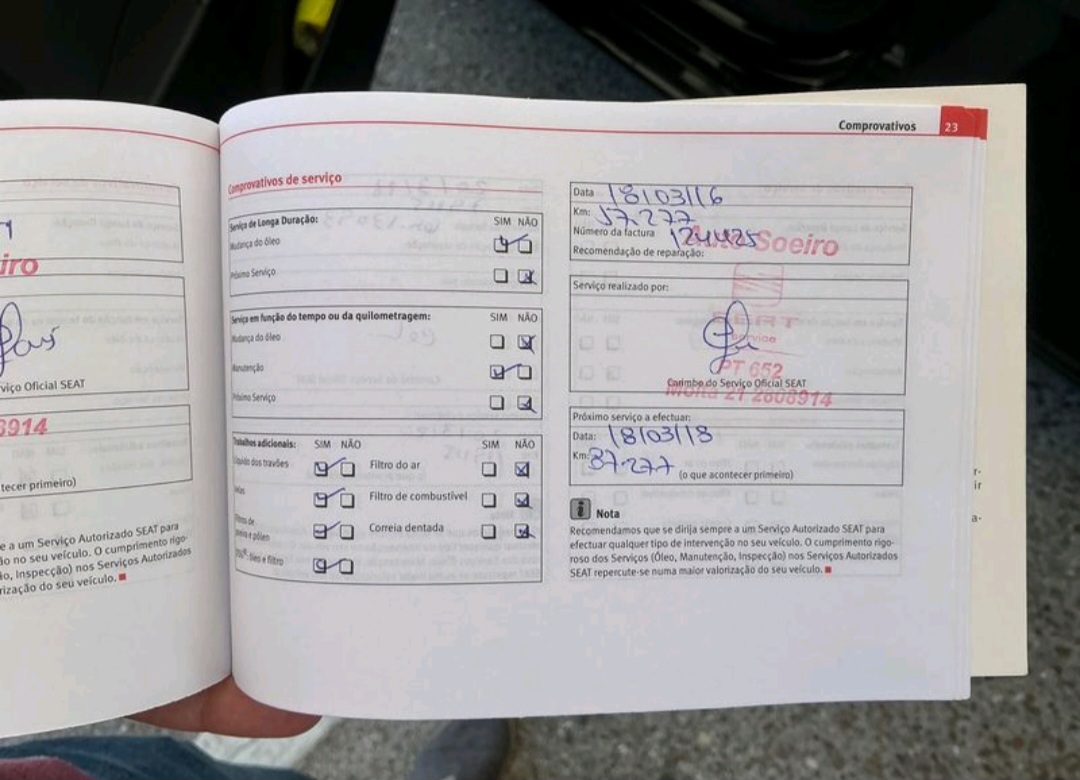 Comprovativos 23
iro
viço Oficial SEAT
8914
tecer primeiro)
e a um Serviço Autorizado SEAT para
ão no seu veículo. O cumprimento rigo-
ão, Inspecção) nos Serviços Autorizados
rização do seu veículo.
Comprovativos de serviço
Serviço de Longa Duração: SIM NÃO
Mudança do óleo
Próximo Serviço
Serviço em função do tempo ou da quilometragem: SIM NÃO
Mudança do óleo
Manutenção
Próximo Serviço
Trabalhos adicionais: SIM NÃO SIM NÃO
Líquido dos travões Filtro do ar
Filtro de combustível
poeira e pólen Correia dentada
óleo e filtro
Data 18/03/16
Km: 57.277
Número da factura 124425
Soeiro
Recomendação de reparação:
Serviço realizado por:
SEAT
Service
PT 652
Carimbo do Serviço Oficial SEAT
Moita 21 2808914
Próximo serviço a efectuar:
Data: 18/03/18
Km: 87.277 (o que acontecer primeiro)
i Nota
Recomendamos que se dirija sempre a um Serviço Autorizado SEAT para
efectuar qualquer tipo de intervenção no seu veículo. O cumprimento rigo-
roso dos Serviços (Óleo, Manutenção, Inspecção) nos Serviços Autorizados
SEAT repercute-se numa maior valorização do seu veículo.
r-
ir
a-